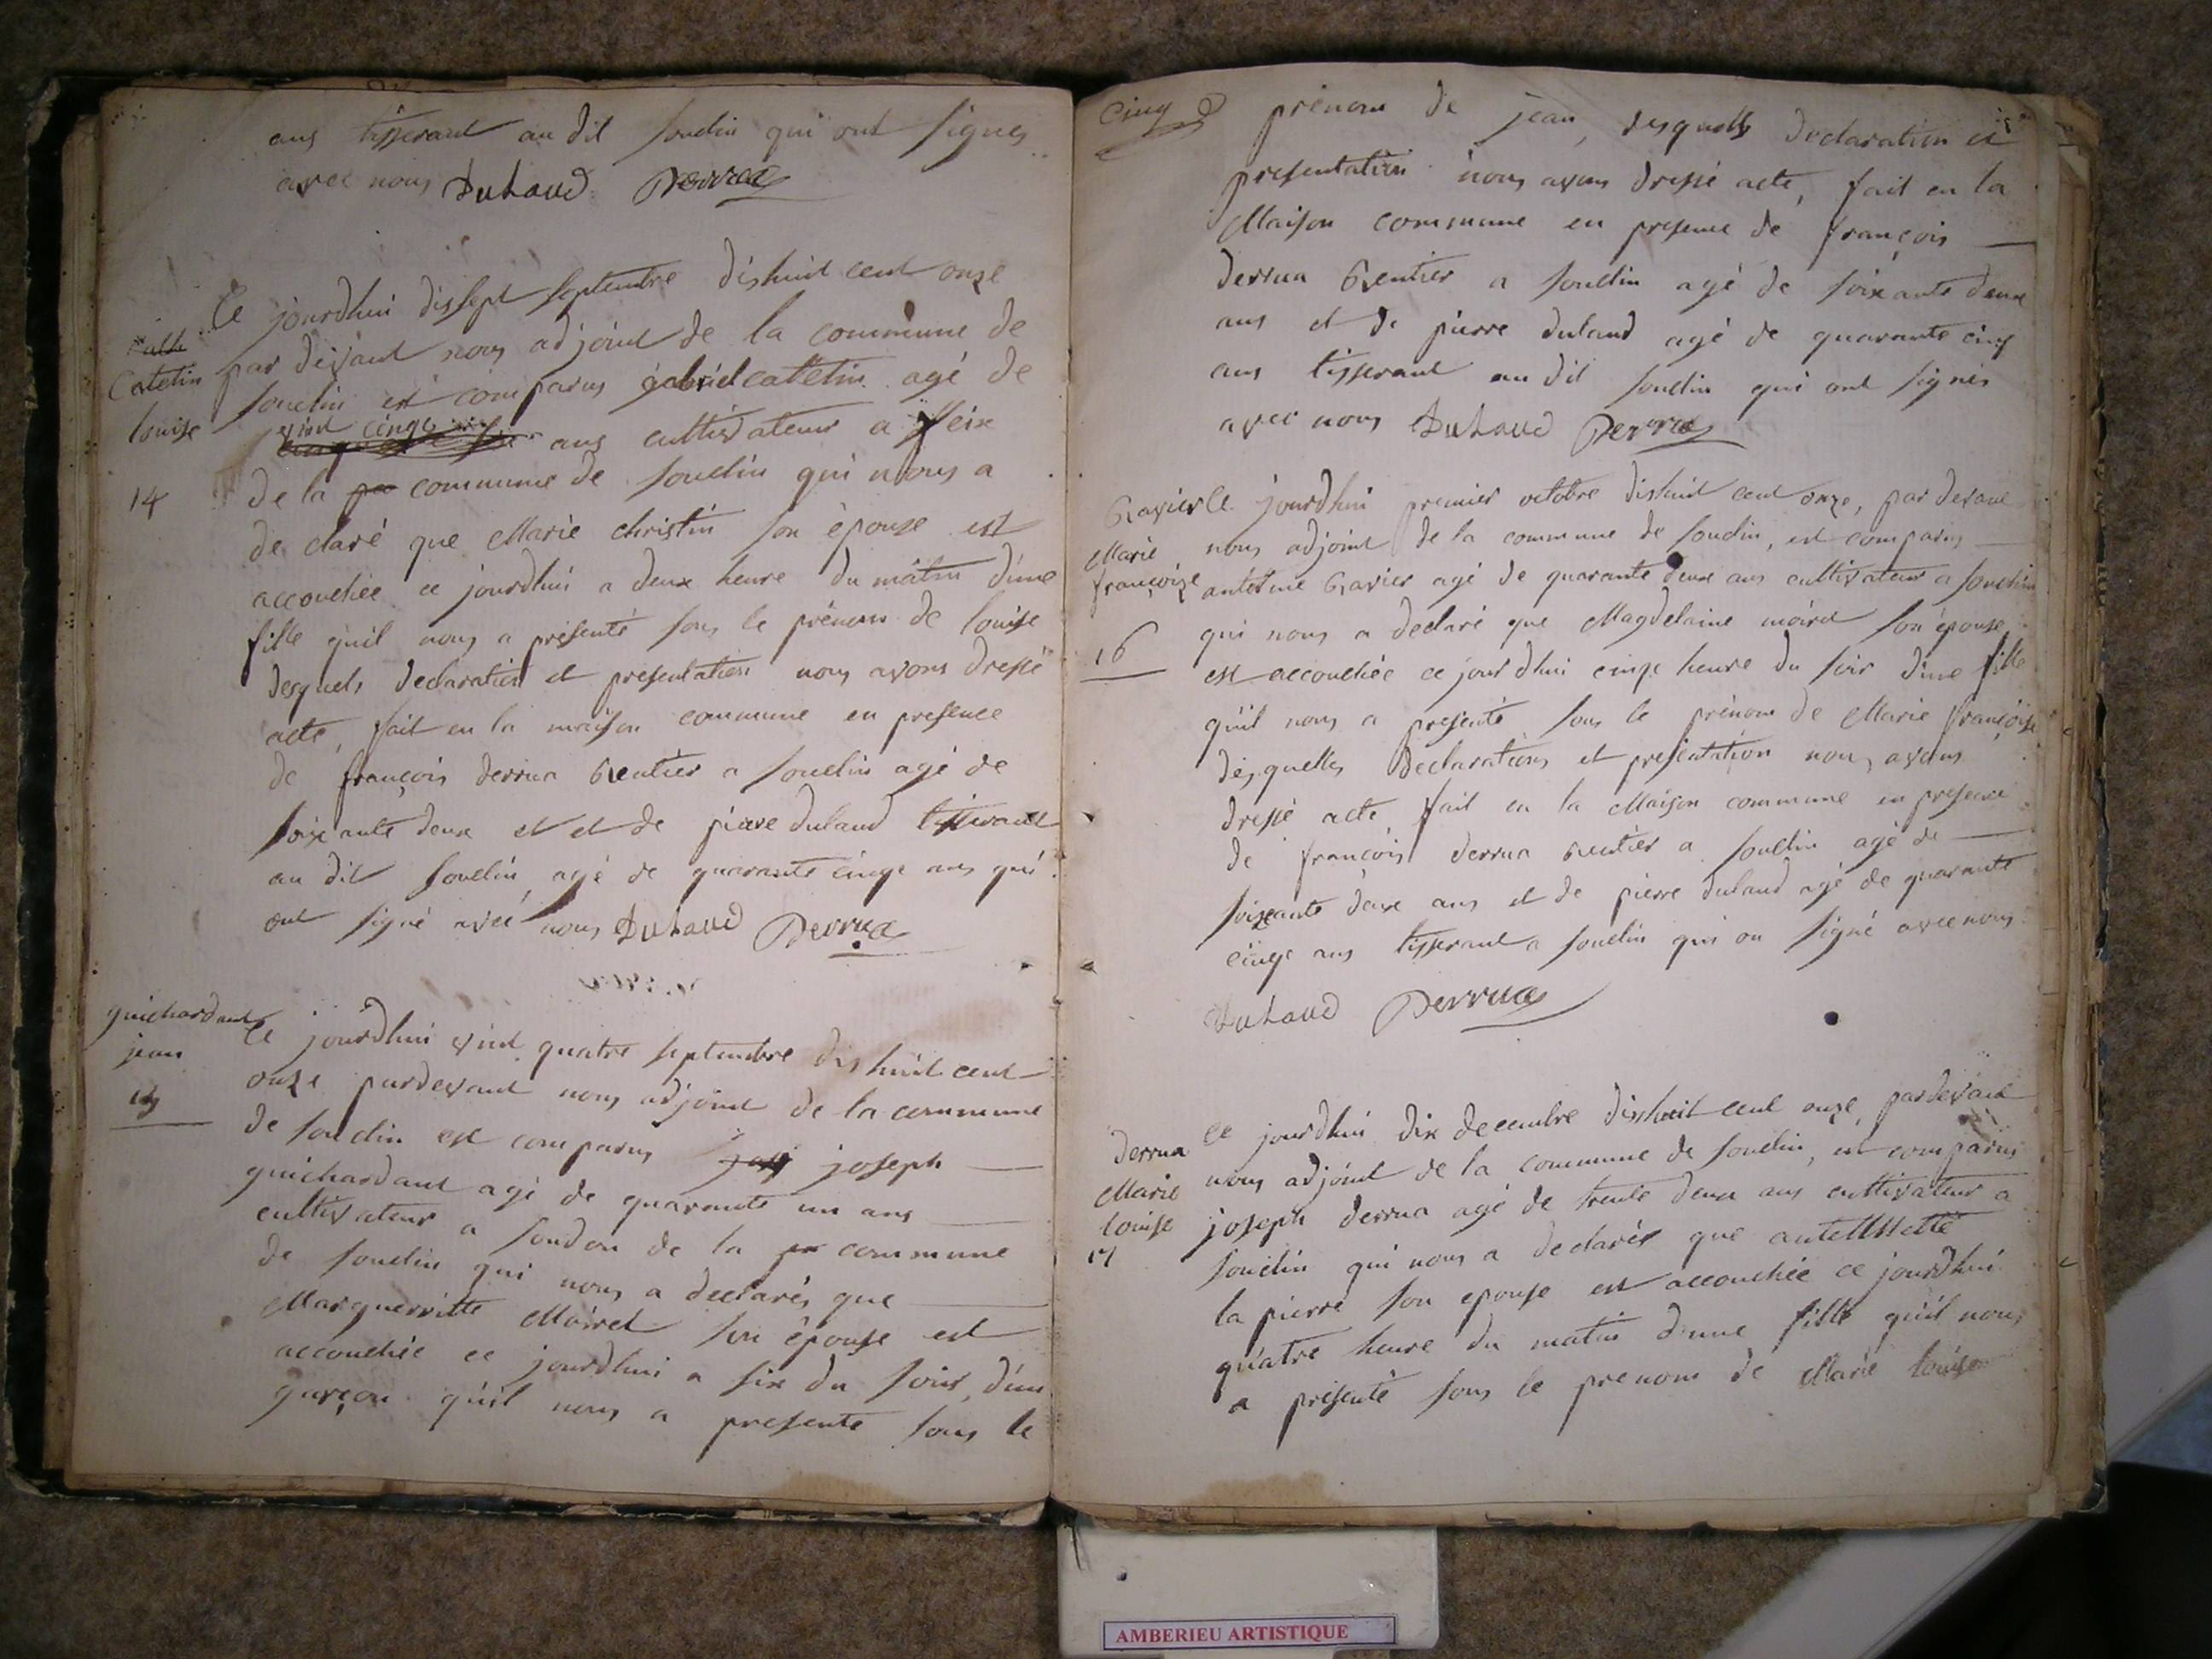 ans tisserant au dit souclin qui ont signes
avec nous Dulaud Derrua
Catelin
louise
14
Ce jourdhui dissept septembre dishuit cent onze
par devant nous adjoint de la commune de
souclin est comparus gabriel catelin agé de
vint cinqe ans cultivateur a
de la commune de souclin qui nous a
de claré que Marie christin son épouse est
accouchée ce jourdhui a deux heure du matin d'une
fille qu'il nous a présenté sous le prénom de louise
desquels declaration et presentation nous avons dressé
acte, fait en la maison commune en presence
de françois derrua Rentier a souclin agé de
soixante deux et et de pierre dulaud tisserant
au dit souclin agé de quarante cinqe ans qui
ont signé avec nous Dulaud Derrua
guichardant
jean
15
Ce jourdhui vint quatre septembre dis huit cent
onze pardevant nous adjoint de la commune
de souclin est comparus joseph
guichardant agé de quarante un ans
cultivateur a soudon de la commune
de souclin qui nous a declarés que
Marguerritte Moiret son épouse est
accouchée ce jourdhui a six du soir, d'un
garçon qu'il nous a presenté sous le
cinq
prénom de jean, desquells declaration et
presentation nous avons dressé acte, fait en la
Maison commune en presence de françois
derrua Rentier a souclin agé de soixante deux
ans et de pierre dulaud agé de quarante cinq
ans tisserant au dit souclin qui ont signés
avec nous Dulaud Derrua
Ravier
Marie
françoize
16
Ce jourdhui premier octobre dishuit cent onze, par devant
nous adjoint de la commune de souclin, est comparus
antelme Ravier agé de quarante deux ans cultivateur a souclin
qui nous a declaré que Magdelaine moiret son épouse
est accouchée ce jour dhui cinqe heure du soir d'une fille
qu'il nous a presenté sous le prénom de Marie françoise
desquelles Declarations et presentation nous avons
dressé acte, fait en la Maison commune en presence
de françois derrua rentier a souclin agé de
soixante deux ans et de pierre dulaud agé de quarante
cinqe ans tisserant a souclin qui on signé avec nous
Dulaud Derrua
derrua
Marie
louise
17
Ce jourdhui dix decembre dishuit cent onze, pardevant
nous adjoint de la commune de souclin, est comparus
joseph derrua agé de trente deux ans cultivateur a
souclin qui nous a declarés que
la pierre son epouse est accouchée ce jourdhui
quatre heure du matin d'une fille qu'il nous
a présenté sous le prenom de Marie louise
AMBERIEU ARTISTIQUE